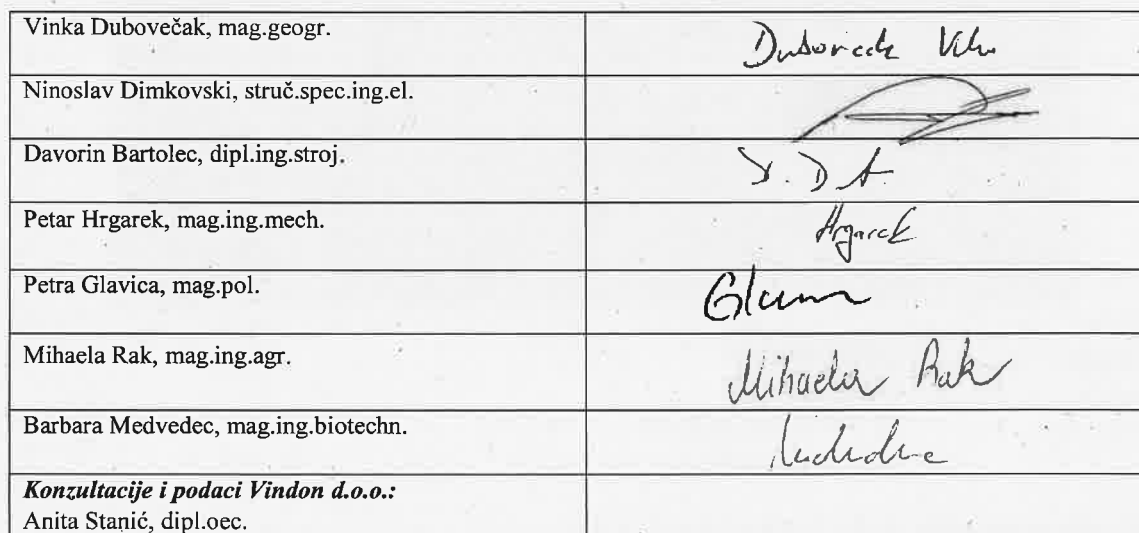 Vinka Dubovečak, mag.geogr.
Ninoslav Dimkovski, struč.spec.ing.el.
Davorin Bartolec, dipl.ing.stroj.
Petar Hrgarek, mag.ing.mech.
Hrgarek
Petra Glavica, mag.pol.
Mihaela Rak, mag.ing.agr.
Mihaela Rak
Barbara Medvedec, mag.ing.biotechn.
Konzultacije i podaci Vindon d.o.o.:
Anita Stanić, dipl.oec.